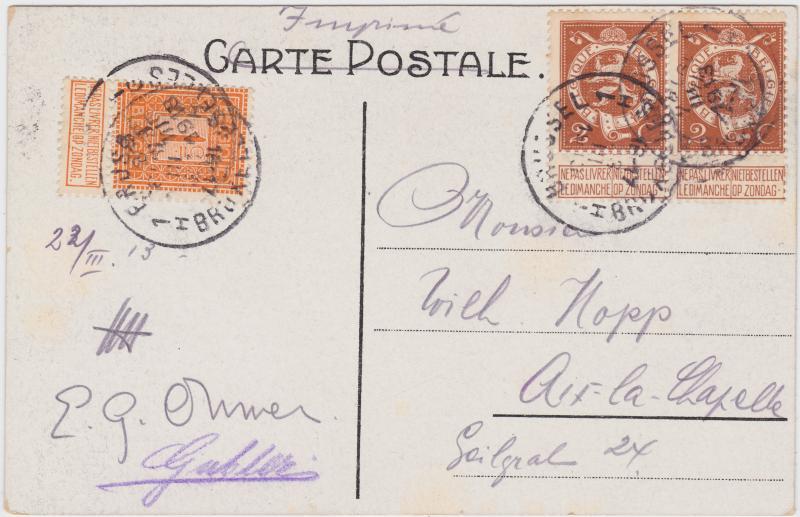 Imprimé
CARTE POSTALE.
NE PAS LIVRER LE DIMANCHE
NIET BESTELLEN OP ZONDAG.
1
BELGIQUE BELGIË
2
NE PAS LIVRER LE DIMANCHE
NIET BESTELLEN OP ZONDAG
BELGIQUE BELGIË
2
NE PAS LIVRER LE DIMANCHE
NIET BESTELLEN OP ZONDAG
BRUXELLES 1
BRUSSEL 1
22/III. 13
Monsieur
Wilh. Hopp
Aix-la-Chapelle
Geilgrab 24
E. G.